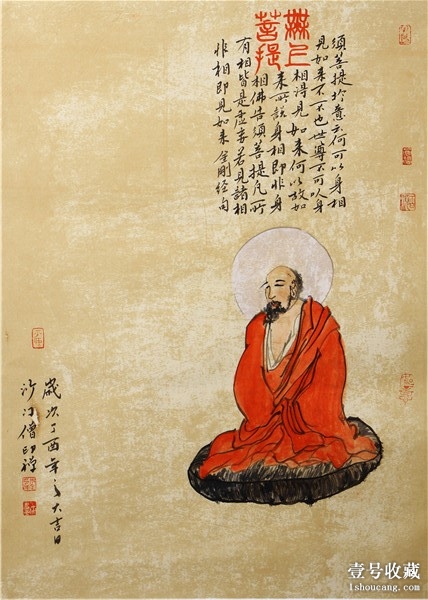 無上
菩提
須菩提於意云何可以身相
見如来不不也世尊不可以身
相得見如来何以故如
来所說身相即非身
相佛告須菩提凡所
有相皆是虚妄若見諸相
非相即見如来金剛經句
歲次丁酉年之大吉日
沙门僧印禅
壹号收藏
1shoucang.com